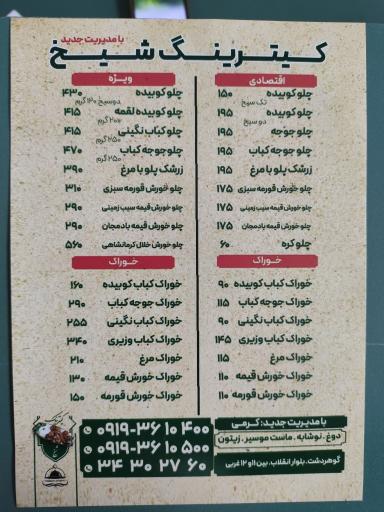 با مدیریت جدید
کیترینگ شیخ
اقتصادی
چلو کوبیده ۱۵۰
تک سیخ
چلو کوبیده ۱۹۵
دو سیخ
چلو جوجه ۱۹۵
چلو جوجه کباب ۱۹۵
زرشک پلو با مرغ ۱۹۵
چلو خورش قورمه سبزی ۱۷۵
چلو خورش قیمه سیب زمینی ۱۷۵
چلو خورش قیمه بادمجان ۱۷۵
چلو کره ۶۰
خوراک
خوراک کباب کوبیده ۹۰
خوراک جوجه کباب ۱۱۵
خوراک کباب نگینی ۹۰
خوراک کباب وزیری ۱۴۵
خوراک مرغ ۱۱۵
خوراک خورش قیمه ۱۱۰
خوراک خورش قورمه ۱۱۰
ویژه
چلو کوبیده ۴۳۰
دو سیخ ۱۲۰ گرم
چلو کوبیده لقمه ۴۱۵
۲۰۰ گرم
چلو کباب نگینی ۴۱۵
۲۵۰ گرم
چلو جوجه کباب ۴۷۰
۲۵۰ گرم
زرشک پلو با مرغ ۳۹۰
چلو خورش قورمه سبزی ۳۱۰
چلو خورش قیمه سیب زمینی ۲۹۰
چلو خورش قیمه بادمجان ۲۹۰
چلو خورش خلال کرمانشاهی ۵۶۰
خوراک
خوراک کباب کوبیده ۱۶۰
خوراک جوجه کباب ۲۹۰
خوراک کباب نگینی ۲۵۵
خوراک کباب وزیری ۳۴۰
خوراک مرغ ۲۱۰
خوراک خورش قیمه ۱۳۰
خوراک خورش قورمه ۱۵۰
با مدیریت جدید: کرمی
دوغ . نوشابه . ماست موسیر . زیتون
گوهردشت . بلوار انقلاب . بین ۱۱ و ۱۲ غربی
۰۹۱۹-۳۶ ۱۰ ۴۰۰
۰۹۱۹-۳۶ ۱۰ ۵۰۰
۳۴ ۳۰ ۲۷ ۶۰